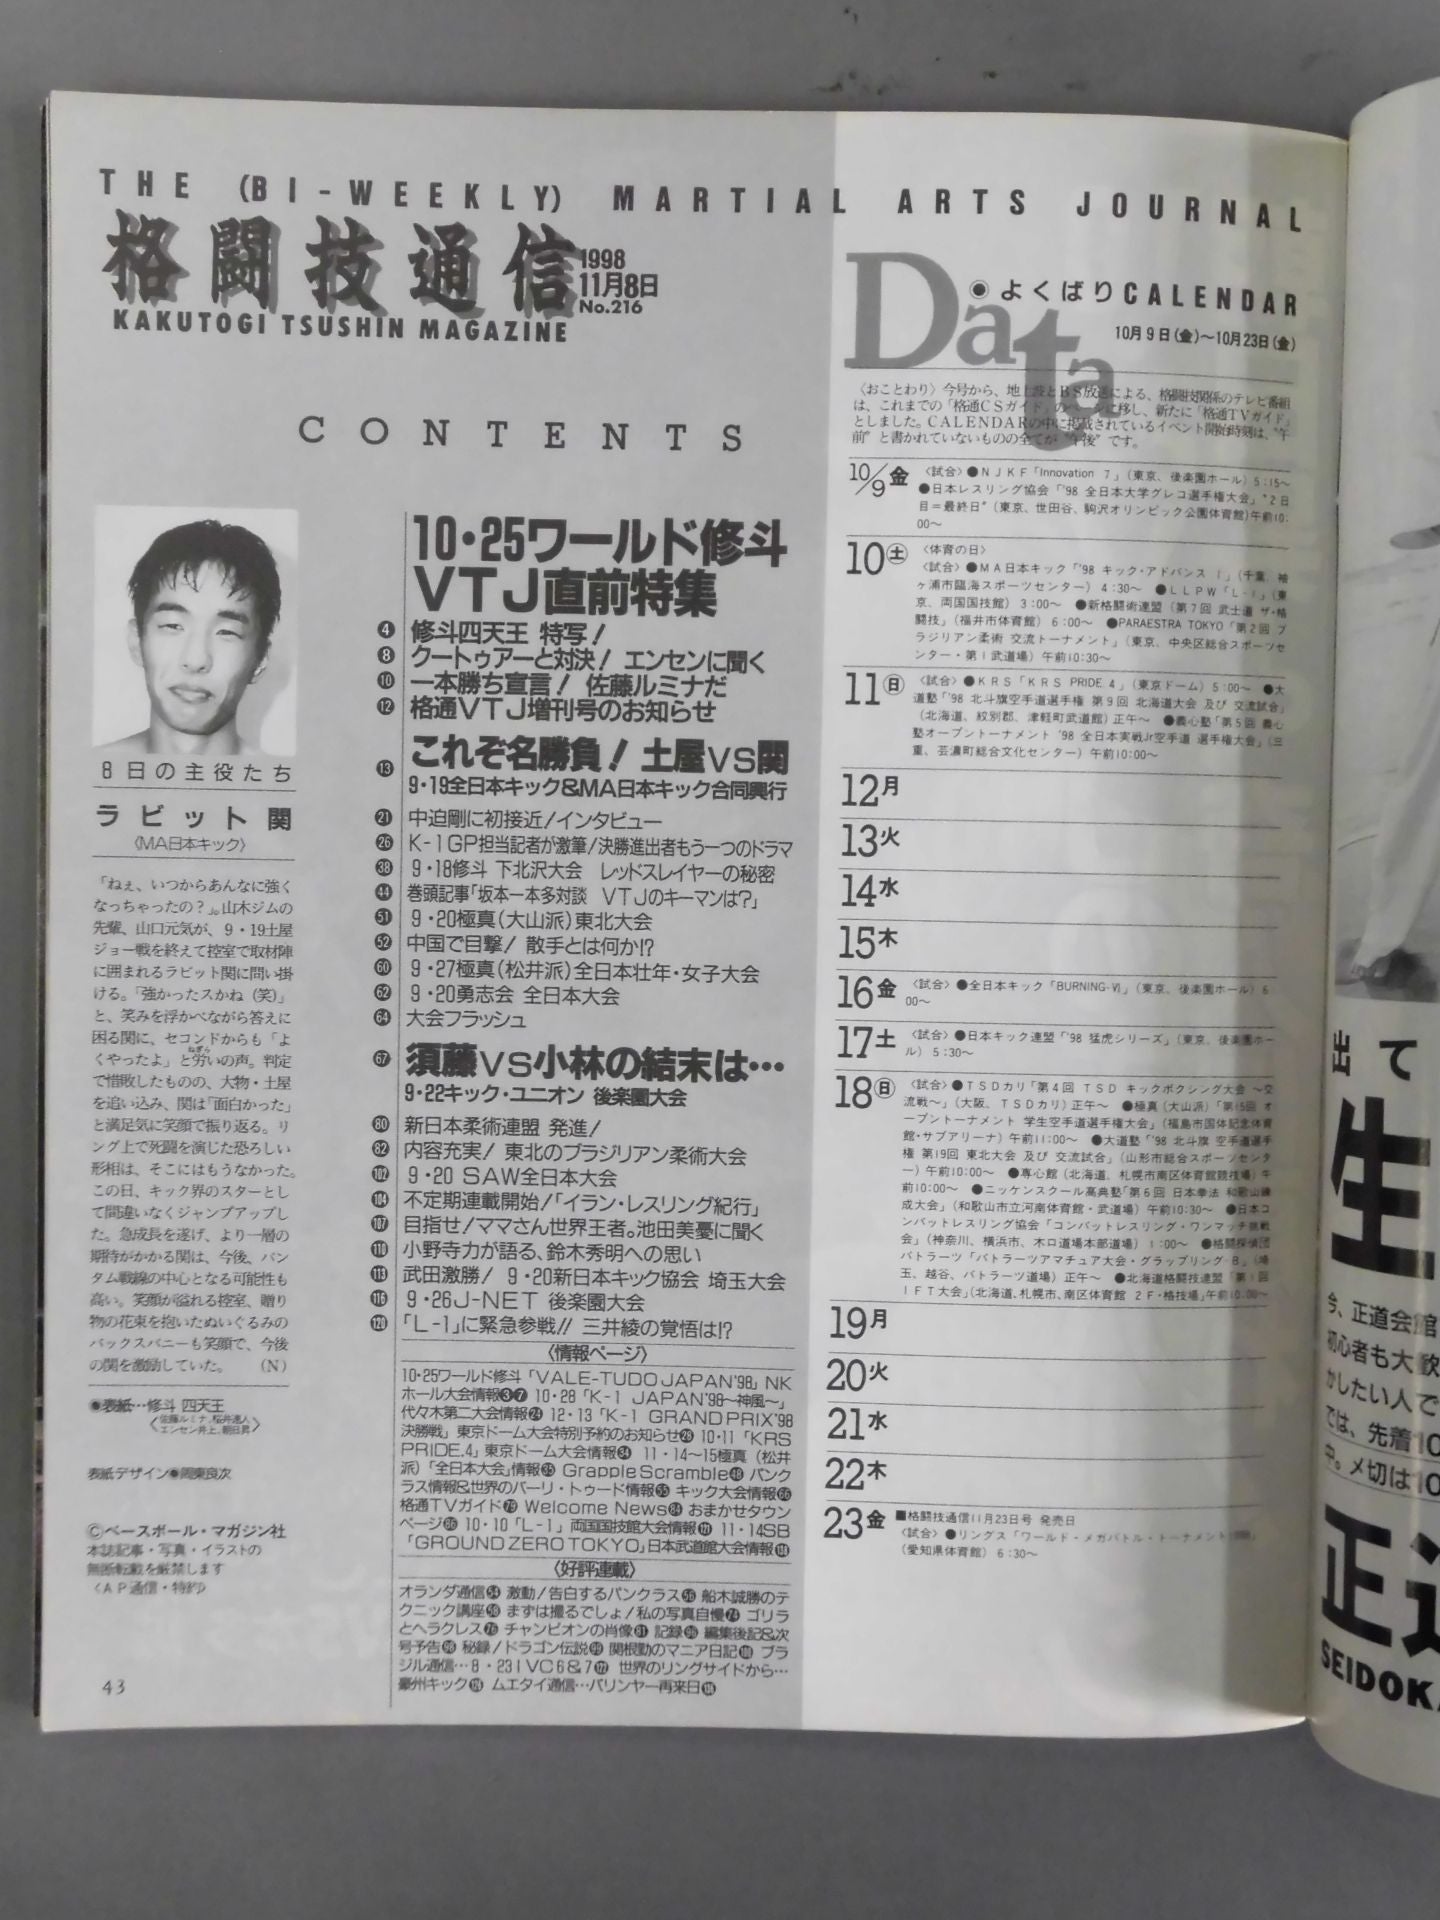 THE (BI-WEEKLY) MARTIAL ARTS JOURNAL
格闘技通信
1998
11月8日
No.216
KAKUTOGI TSUSHIN MAGAZINE
CONTENTS
8日の主役たち
ラビット関
〈MA日本キック〉
「ねぇ、いつからあんなに強く
なっちゃったの？」。山木ジムの
先輩、山口元気が、9・19土屋
ジョー戦を終えて控室で取材陣
に囲まれるラビット関に問い掛
ける。「強かったスかね（笑）」
と、笑みを浮かべながら答えに
困る関に、セコンドからも「よ
くやったよ」と労いの声。判定
で惜敗したものの、大物・土屋
を追い込み、関は「面白かった」
と満足気に笑顔で振り返る。リ
ング上で死闘を演じた恐ろしい
形相は、そこにはもうなかった。
この日、キック界のスターとし
て間違いなくジャンプアップし
た。急成長を遂げ、より一層の
期待がかかる関は、今後、バン
タム戦線の中心となる可能性も
高い。笑顔が溢れる控室、贈り
物の花束を抱いたぬいぐるみの
バックスバニーも笑顔で、今後
の関を激励していた。 （N）
●表紙…修斗 四天王
〈佐藤ルミナ、桜井速人
エンセン井上、朝日昇〉
表紙デザイン●周東良次
©ベースボール・マガジン社
本誌記事・写真・イラストの
無断転載を厳禁します
〈AP通信・特約〉
43
10・25ワールド修斗
VTJ直前特集
4 修斗四天王 特写！
8 クートゥアーと対決！ エンセンに聞く
10 一本勝ち宣言！ 佐藤ルミナだ
12 格通VTJ増刊号のお知らせ
13 これぞ名勝負！ 土屋VS関
9・19全日本キック&MA日本キック合同興行
21 中迫剛に初接近！インタビュー
26 K-1GP担当記者が激筆！決勝進出者もう一つのドラマ
38 9・18修斗 下北沢大会 レッドスレイヤーの秘密
44 巻頭記事「坂本一本多対談 VTJのキーマンは？」
51 9・20極真（大山派）東北大会
52 中国で目撃！ 散手とは何か!?
60 9・27極真（松井派）全日本壮年・女子大会
62 9・20勇志会 全日本大会
64 大会フラッシュ
67 須藤VS小林の結末は…
9・22キック・ユニオン 後楽園大会
80 新日本柔術連盟 発進！
82 内容充実！ 東北のブラジリアン柔術大会
102 9・20 SAW全日本大会
104 不定期連載開始！「イラン・レスリング紀行」
107 目指せ！ママさん世界王者。池田美憂に聞く
110 小野寺力が語る、鈴木秀明への思い
113 武田激勝！ 9・20新日本キック協会 埼玉大会
116 9・26J-NET 後楽園大会
120 「L-1」に緊急参戦!! 三井綾の覚悟は!?
〈情報ページ〉
10・25ワールド修斗「VALE-TUDO JAPAN'98」NK
ホール大会情報37 10・28「K-1 JAPAN'98〜神風〜」
代々木第二大会情報24 12・13「K-1 GRAND PRIX'98
決勝戦」東京ドーム大会特別予約のお知らせ28 10・11「KRS
PRIDE.4」東京ドーム大会情報34 11・14〜15極真（松井
派）「全日本大会」情報35 Grapple Scramble48 パンク
ラス情報&世界のバーリ・トゥード情報55 キック大会情報66
格通TVガイド79 Welcome News84 おまかせタウン
ページ86 10・10「L-1」両国国技館大会情報 11・14SB
「GROUND ZERO TOKYO」日本武道館大会情報
〈好評連載〉
オランダ通信54 激動！告白するパンクラス56 船木誠勝のテ
クニック講座58 まずは撮るでしょ！私の写真自慢74 ゴリラ
とヘラクレス76 チャンピオンの肖像81 記録96 編集後記&次
号予告98 秘録！ドラゴン伝説99 関根勤のマニア日記 ブラ
ジル通信…8・23IVC6&7 世界のリングサイドから…
豪州キック ムエタイ通信…パリンヤー再来日
Data
●よくばりCALENDAR
10月9日(金)〜10月23日(金)
〈おことわり〉今号から、地上波とBS放送による、格闘技関係のテレビ番組
は、これまでの「格通CSガイド」のページに移し、新たに「格通TVガイド」
としました。CALENDARの中に掲載されているイベント開始時刻は、“午
前”と書かれていないものの全てが“午後”です。
10/9金 〈試合〉●NJKF「Innovation 7」（東京、後楽園ホール）5:15〜
●日本レスリング協会「'98 全日本大学グレコ選手権大会」“2日
目＝最終日”（東京、世田谷、駒沢オリンピック公園体育館）午前10:
00〜
10土 〈体育の日〉
〈試合〉●MA日本キック「'98 キック・アドバンス Ⅰ」（千葉、袖
ヶ浦市臨海スポーツセンター）4:30〜 ●LLPW「L-1」（東
京、両国国技館）3:00〜 ●新格闘術連盟（第7回 武士道 ザ・格
闘技」（福井市体育館）6:00〜 ●PARAESTRA TOKYO「第2回 ブ
ラジリアン柔術 交流トーナメント」（東京、中央区総合スポーツセ
ンター・第1武道場）午前10:30〜
11日 〈試合〉●KRS「KRS PRIDE 4」（東京ドーム）5:00〜 ●大
道塾「'98 北斗旗空手道選手権 第9回 北海道大会 及び 交流試合」
（北海道、紋別郡、津軽町武道館）正午〜 ●義心塾「第5回 義心
塾オープントーナメント '98 全日本実戦Jr空手道 選手権大会」（三
重、芸濃町総合文化センター）午前10:00〜
12月
13火
14水
15木
16金 〈試合〉●全日本キック「BURNING-Ⅵ」（東京、後楽園ホール）6:
00〜
17土 〈試合〉●日本キック連盟「'98 猛虎シリーズ」（東京、後楽園ホー
ル）5:30〜
18日 〈試合〉●TSDカリ「第4回 TSD キックボクシング大会 〜交
流戦〜」（大阪、TSDカリ）正午〜 ●極真（大山派）「第15回 オ
ープントーナメント 学生空手道選手権大会」（福島市国体記念体育
館・サブアリーナ）午前11:00〜 ●大道塾「'98 北斗旗 空手道選手
権 第19回 東北大会 及び 交流試合」（山形市総合スポーツセンタ
ー）午前10:00〜 ●専心館（北海道、札幌市南区体育館競技場）午
前10:00〜 ●ニッケンスクール高典塾「第6回 日本拳法 和歌山練
成大会」（和歌山市立河南体育館・武道場）午前10:30〜 ●日本コ
ンバットレスリング協会「コンバットレスリング・ワンマッチ挑戦
会」（神奈川、横浜市、木口道場本部道場）1:00〜 ●格闘探偵団
バトラーツ「バトラーツアマチュア大会・グラップリング-B」（埼
玉、越谷、バトラーツ道場）正午〜 ●北海道格闘技連盟「第1回
IFT大会」（北海道、札幌市、南区体育館 2F・格技場）午前10:00〜
19月
20火
21水
22木
23金 ■格闘技通信11月23日号 発売日
〈試合〉●リングス「ワールド・メガバトル・トーナメント
（愛知県体育館）6:30〜
出て
生
今、正道会館
初心者も大歓
かしたい人で
では、先着10
中。〆切は10
正道
SEIDOKA